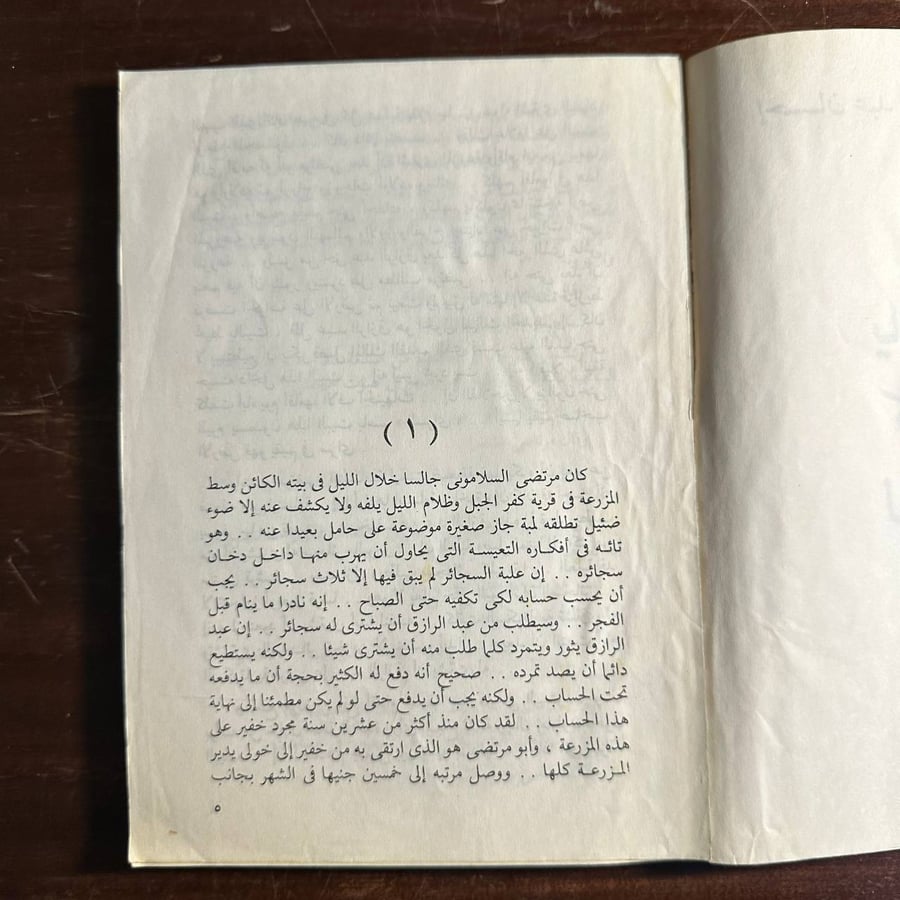 ( ١ )
كان مرتضى السلامونى جالسا خلال الليل فى بيته الكائن وسط
المزرعة فى قرية كفر الجبل وظلام الليل يلفه ولا يكشف عنه إلا ضوء
ضئيل تطلقه لمبة جاز صغيرة موضوعة على حامل بعيدا عنه . . وهو
تائه فى أفكاره التعيسة التى يحاول أن يهرب منها داخل دخان
سجائره . . إن علبة السجائر لم يبق فيها إلا ثلاث سجائر . . يجب
أن يحسب حسابه لكى تكفيه حتى الصباح . . إنه نادرا ما ينام قبل
الفجر . . وسيطلب من عبد الرازق أن يشترى له سجائر . . إن عبد
الرازق يثور ويتمرد كلما طلب منه أن يشترى شيئا . . ولكنه يستطيع
دائما أن يصد تمرده . . صحيح أنه دفع له الكثير بحجة أن ما يدفعه
تحت الحساب . . ولكنه يجب أن يدفع حتى لو لم يكن مطمئنا إلى نهاية
هذا الحساب . . لقد كان منذ أكثر من عشرين سنة مجرد خفير على
هذه المزرعة ، وأبو مرتضى هو الذى ارتقى به من خفير إلى خولى يدير
المزرعة كلها . . ووصل مرتبه إلى خمسين جنيها فى الشهر بجانب
٥
إحسان عبد